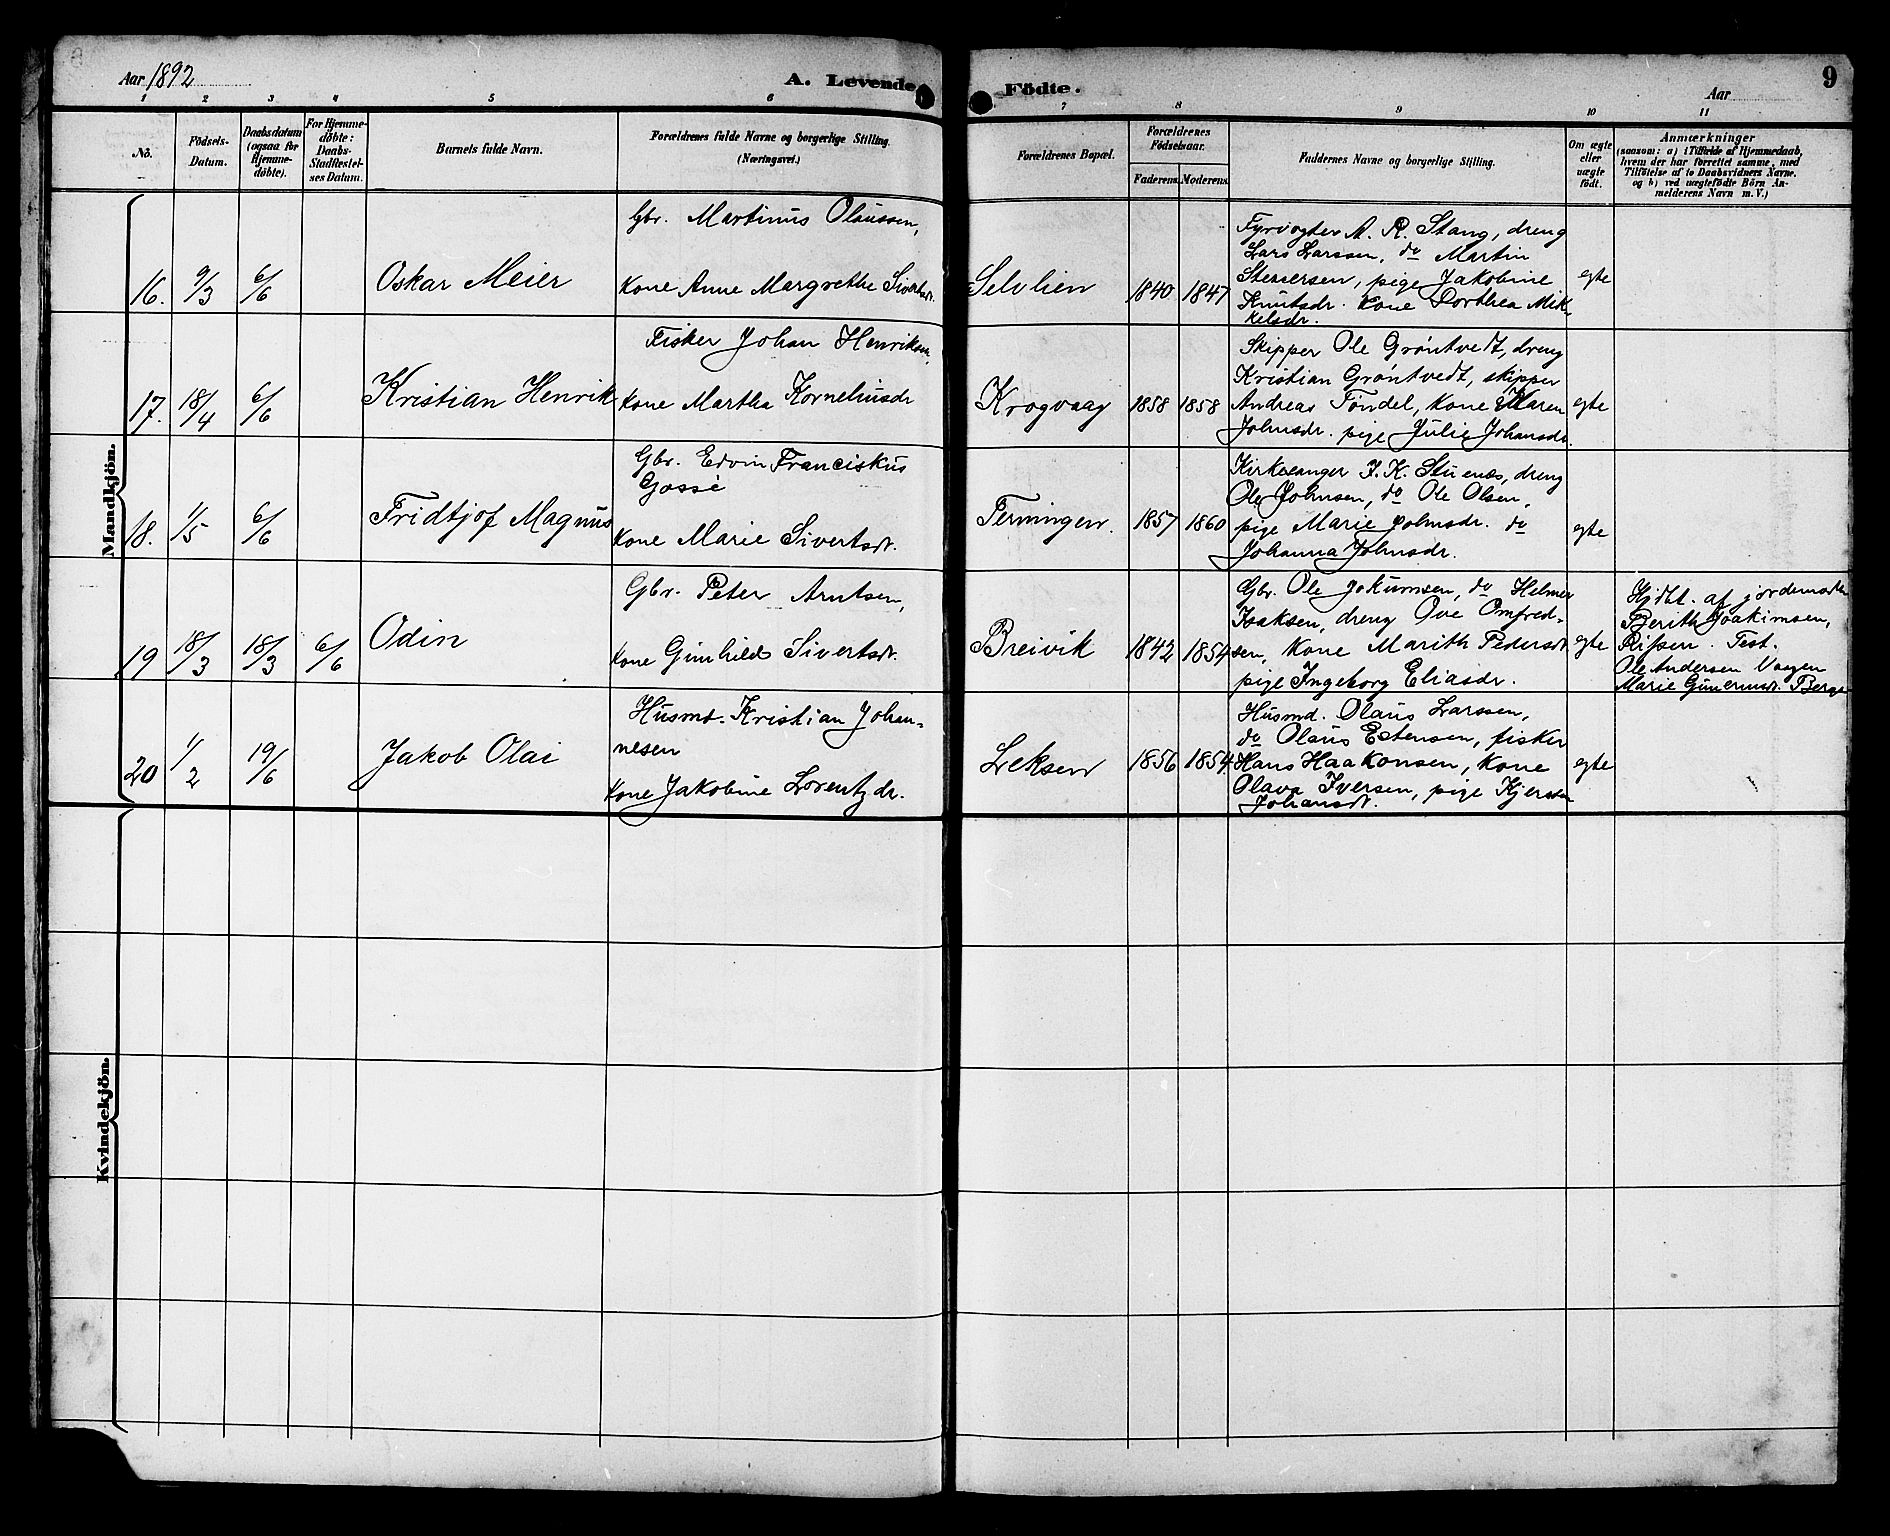 Aar 1892
A. Levende
Födte.
Aar
9
1 2 3 4 5 6 7 8 9 10 11
No.
Födsels-
Datum.
Daabsdatum
(ogsaa for
Hjemme-
döbte).
For Hjemme-
döbte:
Daabs-
Stadfestel-
ses Datum.
Barnets fulde Navn.
Forældrenes fulde Navne og borgerlige Stilling.
(Næringsvei.)
Forældrenes Bopæl.
Forældrenes
Födselsaar.
Faderens. Moderens.
Faddernes Navne og borgerlige Stilling.
Om ægte
eller
uægte
født.
Anmærkninger
(saasom: a) i Tilfælde af Hjemmedaab,
hvem der har forrettet samme, med
Tilföielse af to Daabsvidners Navne.
og b) ved uægtefödte Börn An-
melderens Navn m. V.)
Mandkjön.
16. 9/3 6/6
Oskar Meier
Gbr. Martinus Olaussen,
Kone Anne Margrethe Sivertsdt.
Selvlien
1840 1847
Fyrvogter A. R. Stang, dreng
Lars Larssen, do Martin
pige Jakobine
Knutsdr. Kone Dorthea Mik-
kelsdr.
egte
17. 18/4 6/6
Kristian Henrik
Fisker Johan Henriksen,
Kone Martha Korneliusdr
Krogvaag
1858 1858
Skipper Ole Gröntvedt, dreng
Kristian Gröntvedt, skipper
Andreas Föndel, Kone Maren
Johnsdr. pige Julie Johansdr.
egte
18. 1/5 6/6
Fridtjof Magnus
Gbr. Edvin Franciskus
Gassé
Kone Marie Sivertsdt.
Terningen.
1857 1860
Kirkesanger J. K. Stuenæs, dreng
Ole Johnsen, do Ole Olsen,
pige Marie Johnsdr. do
Johanna Johnsdr.
egte
19 18/3 18/3 6/6
Odin
Gbr. Peter Arntsen,
Kone Gunhild Sivertsdt.
Breivik
1842 1854
Gbr. Ole Jokumsen, do Helmer
Isaksen, dreng Ove Omfred-
sen, Kone Marith Pedersdt
pige Ingeborg Eliasdr.
egte
Hjdbt. af jordemoder
Berith Joakimsen,
Test.
Ole Andersen Vaagen
Marie Berge
20 1/2 19/6
Jakob Olai
Husmd. Kristian Johan-
nesen
Kone Jakobine Lorentzdr.
Leksen
1856 1854
Husmd. Olaus Larssen,
do Olaus Estensen, fisker
Hans Haakonsen, Kone
Olava Iversen, pige
Johansdt.
egte
Kvindekjön.